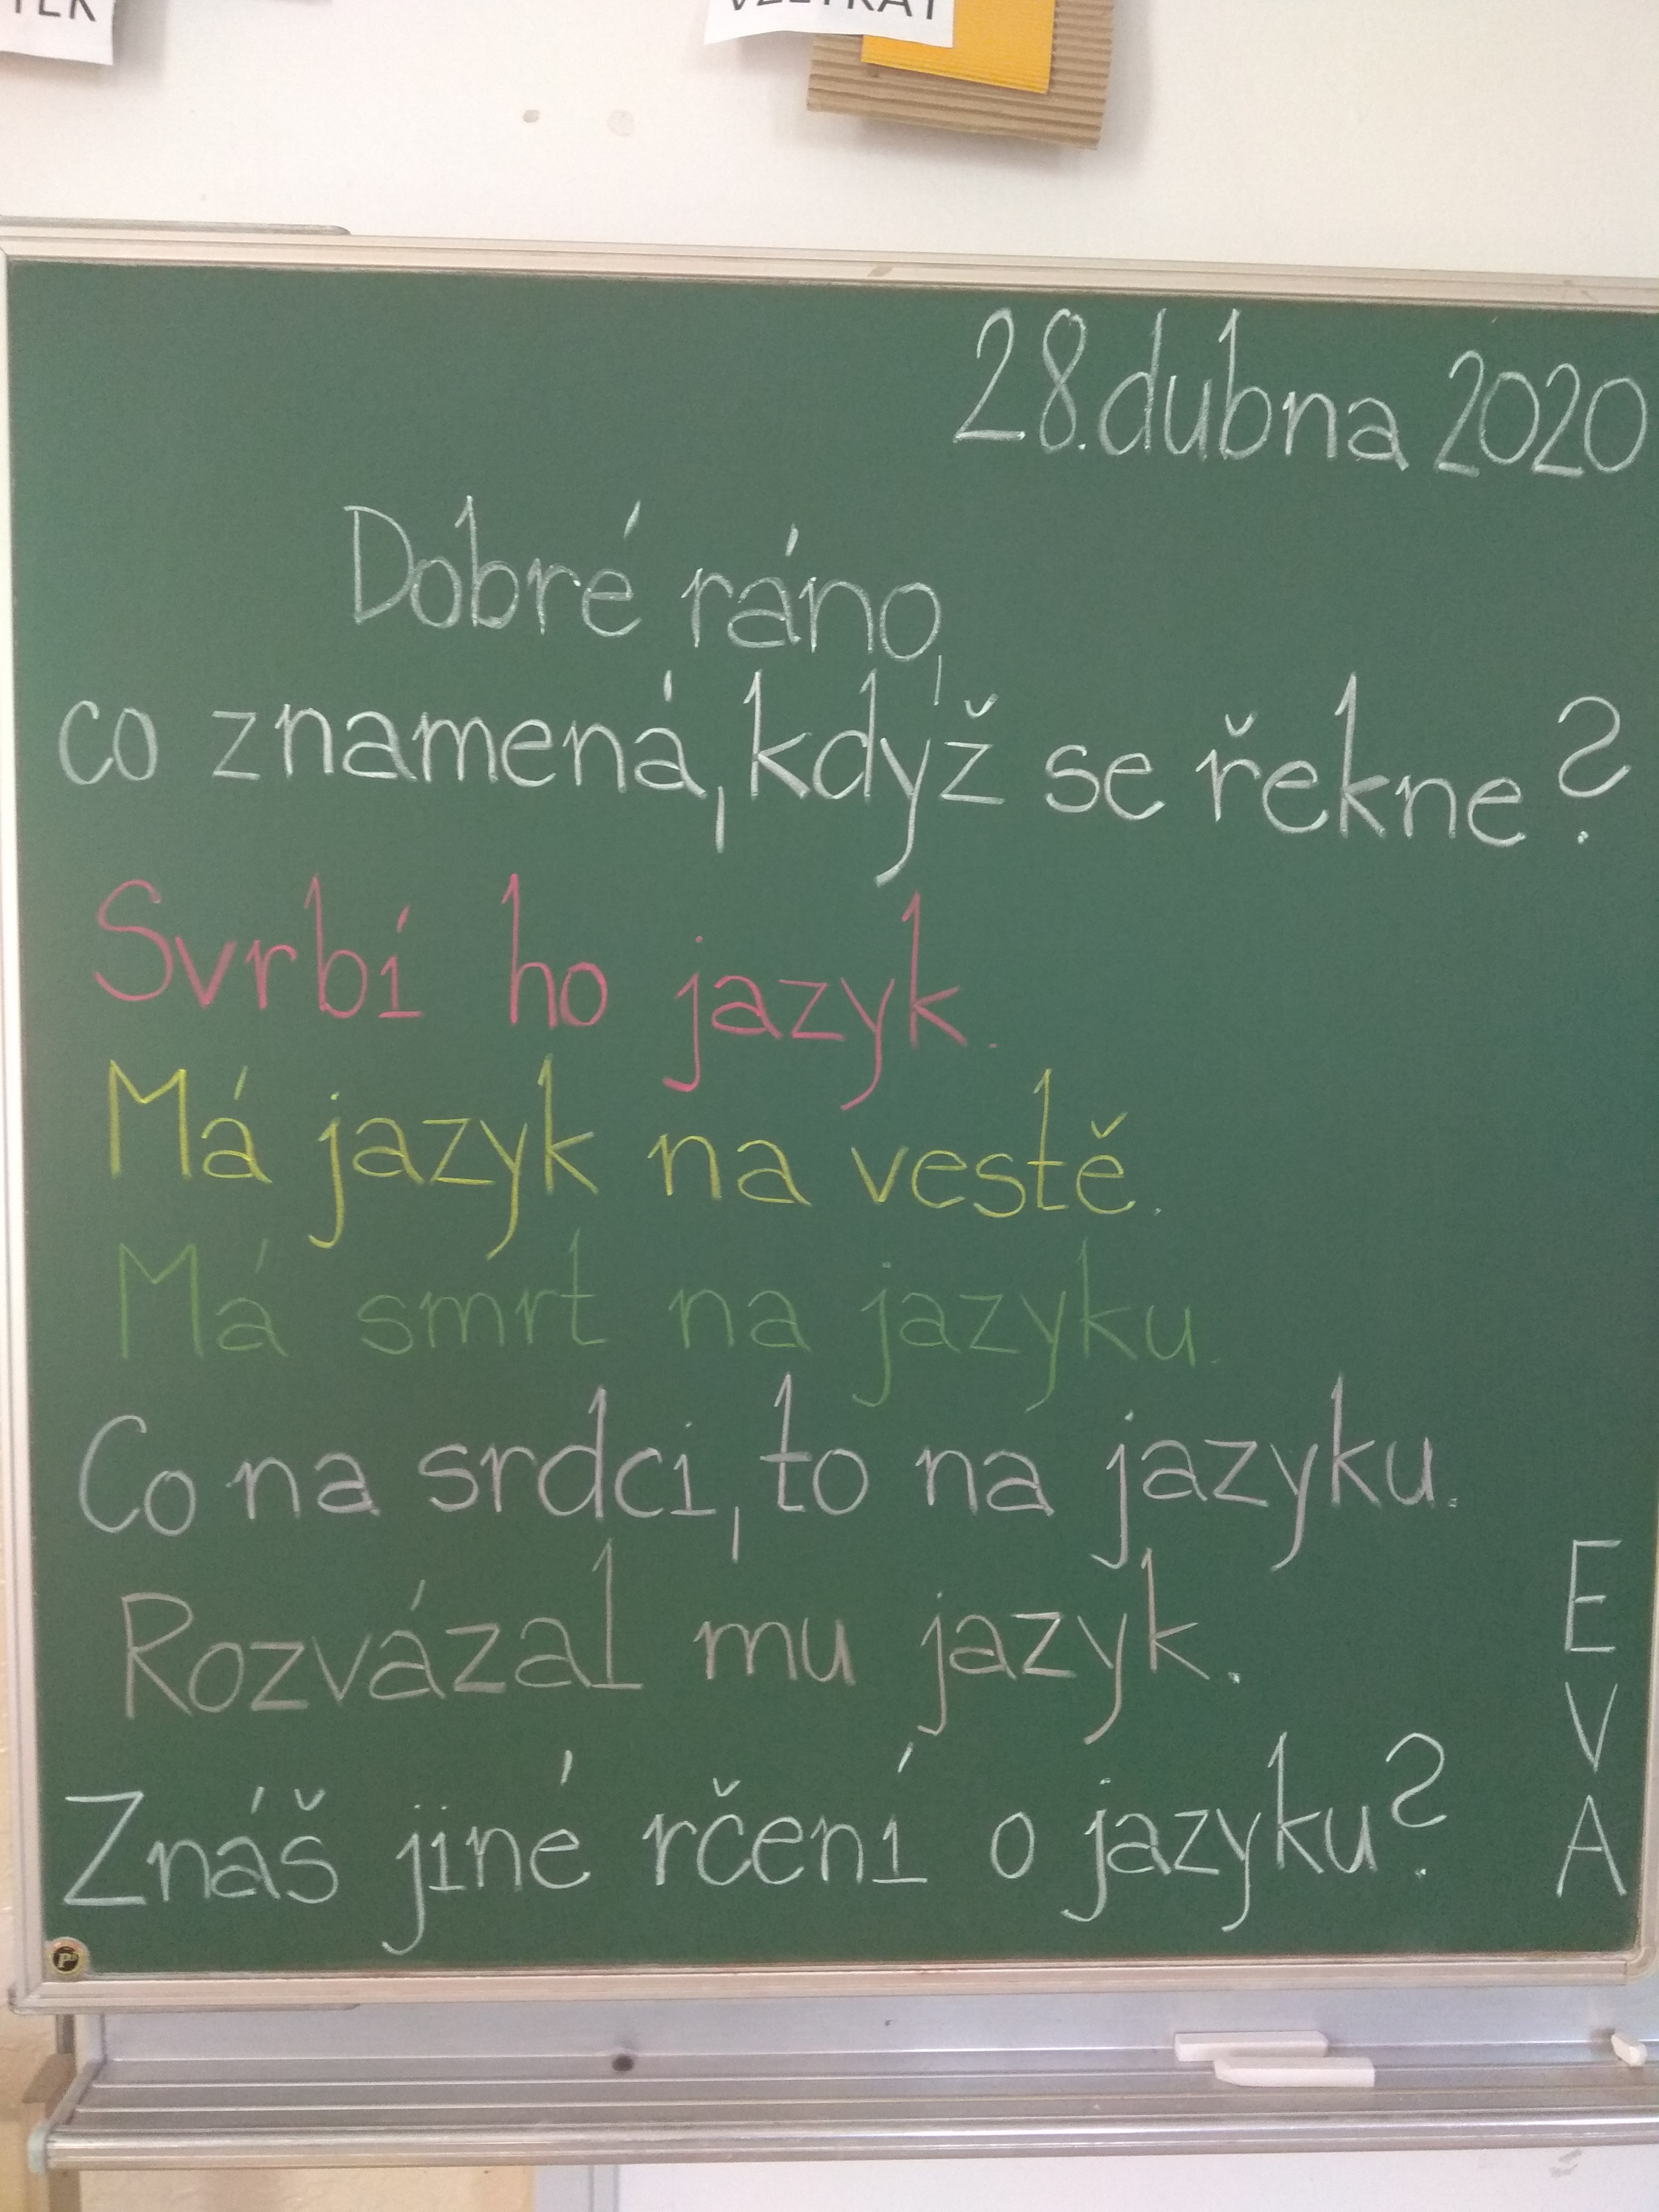 28. dubna 2020
Dobré ráno,
co znamená, když se řekne?
Svrbí ho jazyk.
Má jazyk na vestě.
Má smrt na jazyku.
Co na srdci, to na jazyku.
Rozvázal mu jazyk.
Znáš jiné rčení o jazyku?
E
V
A